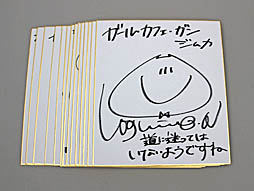 ガールカフェ・ガン
ジムカ
道に迷っては
いけないようですね